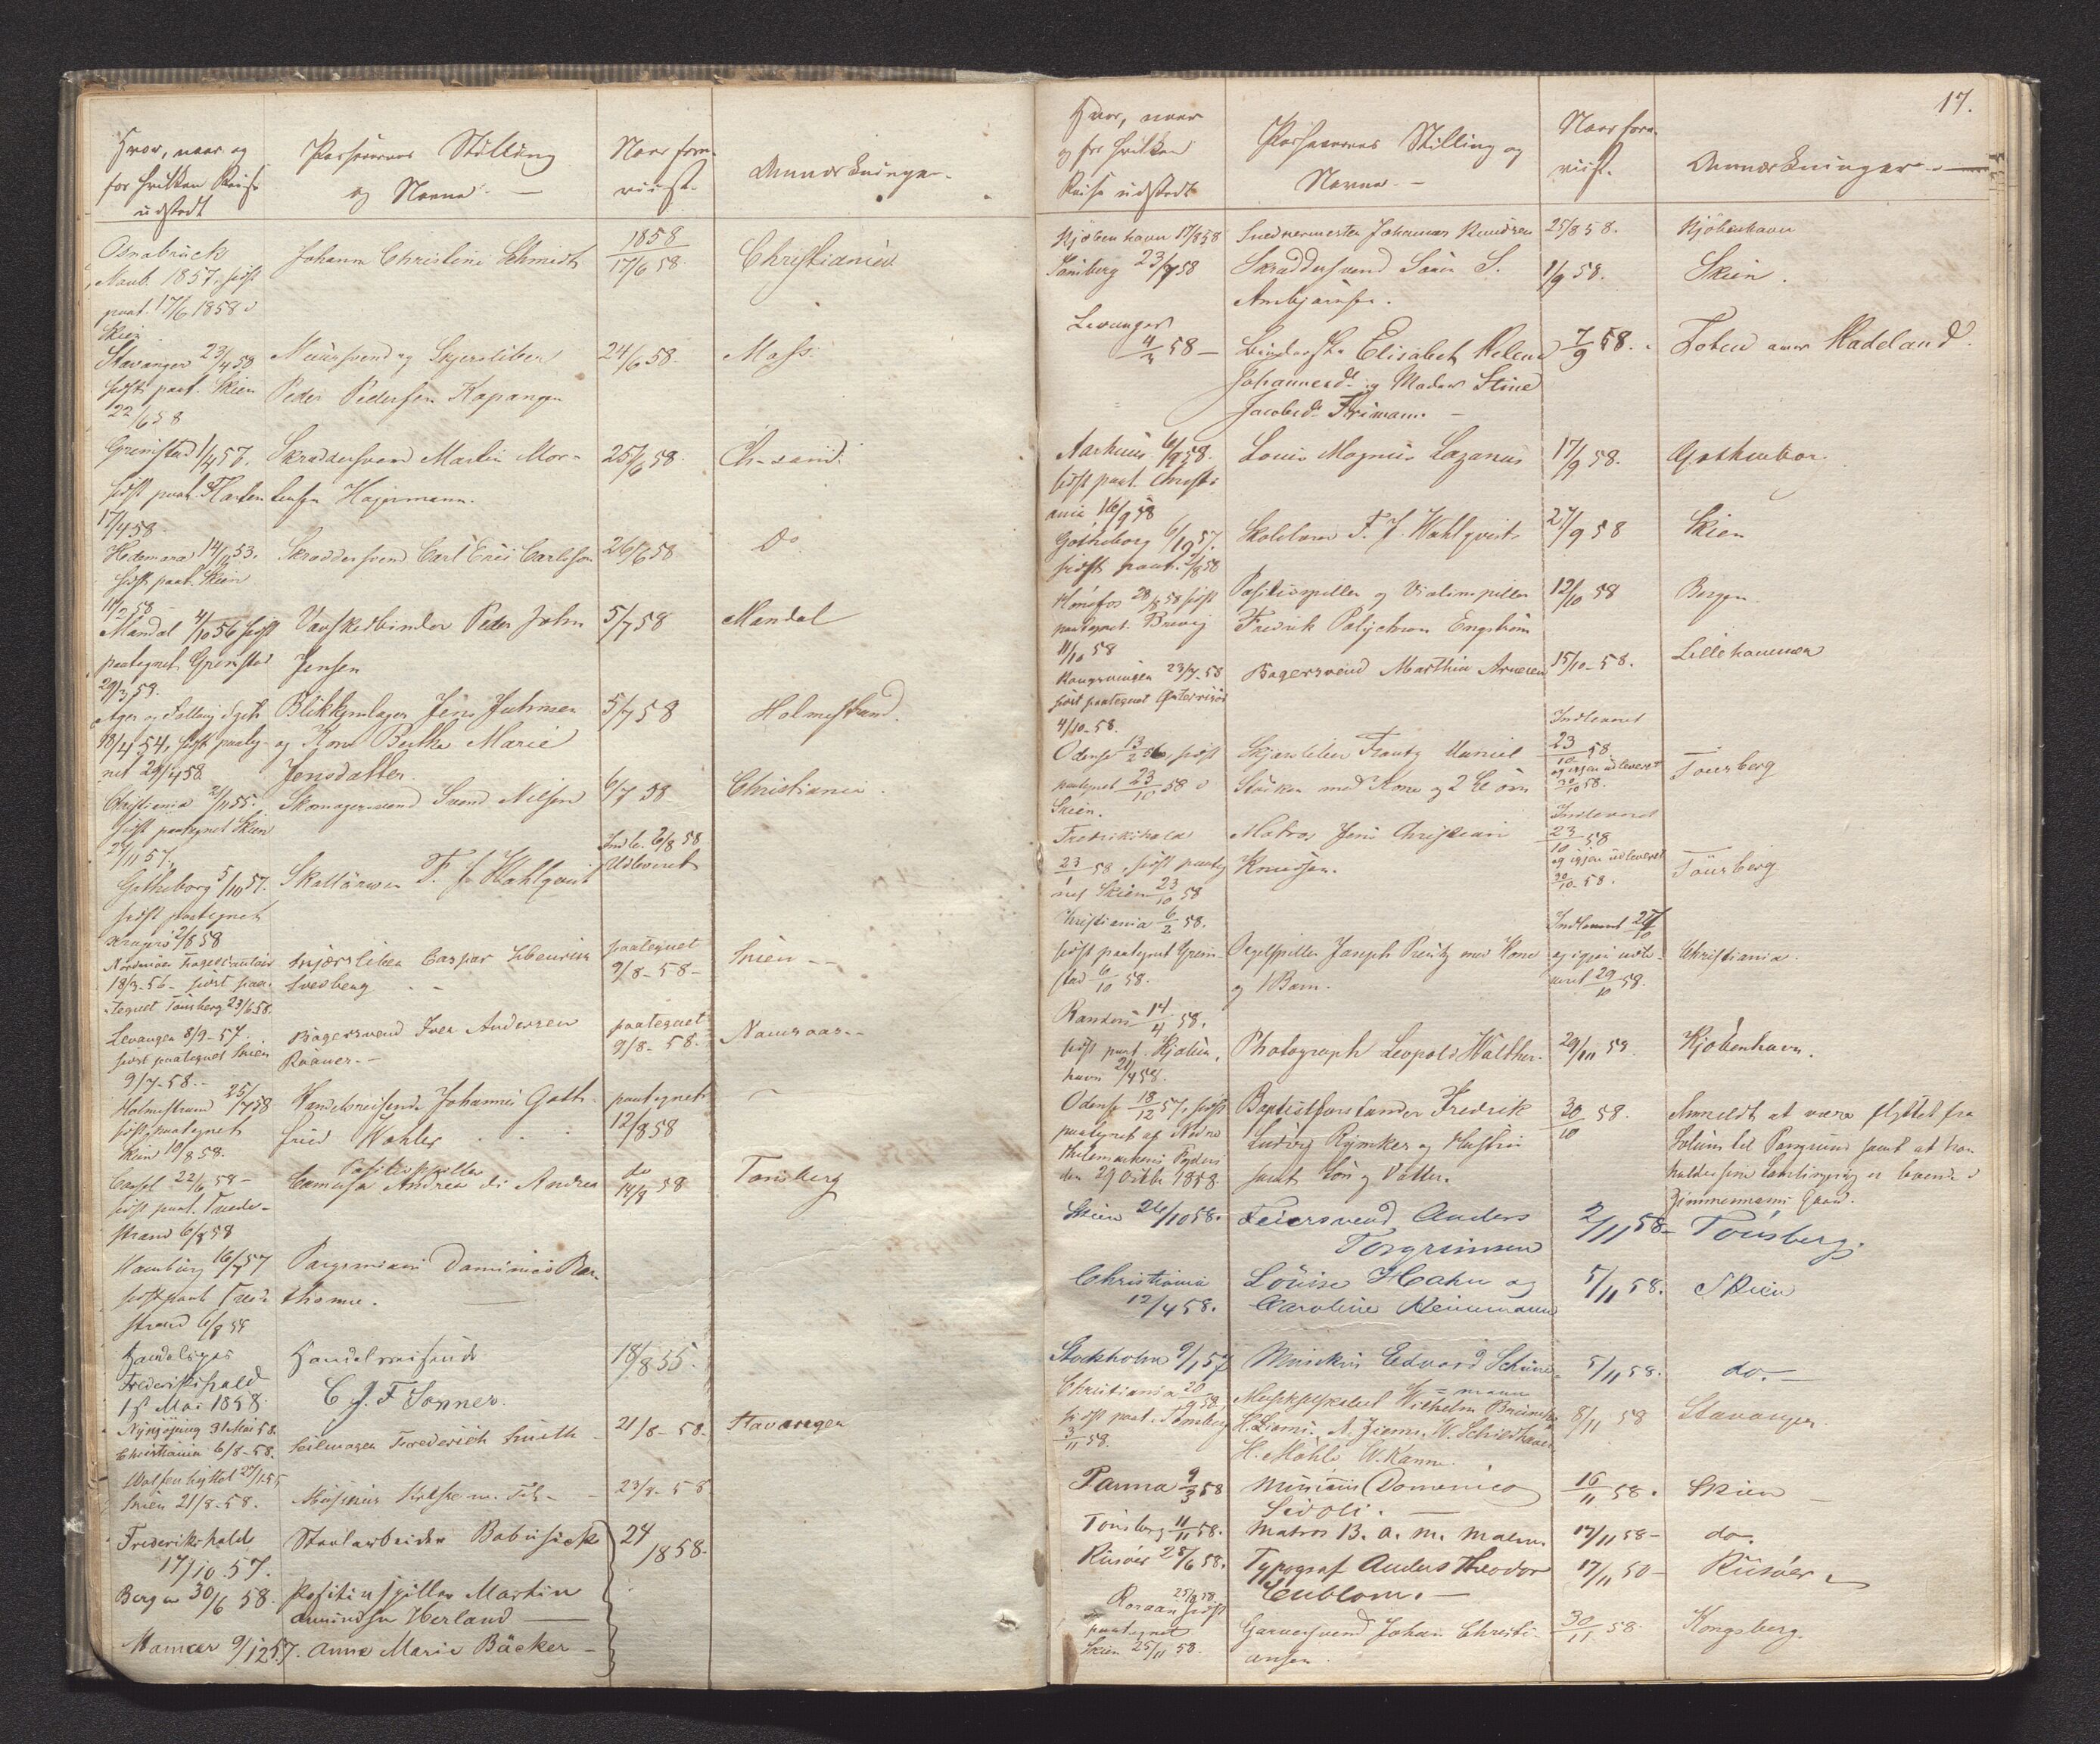 Hvor, naar og
for hvilken Reise
udstedt
Passernes Stilling
og Navne. —
Naar fore-
viist.
Anmærkninger.
Osnabrück
1857, sidst
paat. 17/6 1858 i
Skien
Johanne Christine Schmidt
1858
17/6 58.
Christiania
Stavanger 23/4 58
sidst paat. Skien
22/6 58
Muursvend og Skjærsliber
Peder Pedersen Kapangen
24/6 58.
Moss.
Grimstad 1/4 57.
sidst paat.
17/4 58.
Skræddersvend Martin Mor-
tensen Hagermann.
25/6 58.
Ch-sand.
Hedemora 14/11 53.
sidst paat. Skien
11/2 58 -
Skræddersvend Carl Eric Carlsson
26/6 58
Do
Mandal 4/10 56 sidst
paategnet Grimstad
29/3 58.
Vævskedbinder Peder John
Jensen
5/7 58
Mandal
18/4 54, sidst paateg-
net 29/4 58.
Blikkenslager Jens
og Kone Berthe Marie
Jensdatter.
5/7 58
Holmestrand.
Christiania 2/11 55.
sidst paategnet Skien
27/11 57.
Skomagersvend Svend Nilsen
6/7 58
Christiania.
Gotheborg 5/10 57.
sidst paategnet
Kragerø 2/8 58
F. J. Wahlqvist
Indle. 6/8 58
Udleveret
18/3-56- sidst paa-
tegnet Tönsberg 23/6 58.
Skjærsliber Caspar Henrich
Svedberg
paategnet
9/8-58-
Skien --
Levanger 8/9-57.
sidst paategnet Skien
9/7-58.-
Bagersvend Iver Andersen
Raaner.-
paategnet
9/8-58.-
Namsaas..
Holmestrand 25/7 58
sidst paategnet
Skien 10/8 58.
Handelsreisende Johannes Gott-
fried Wohler
paategnet
12/8 58
Cassel 22/6 58 -
sidst paat. Trede-
strand 6/8 58
Positivspiller
Andrea di Andrea
do
14/8 58
Tønsberg
Hamburg 16/7 57
sidst paat. Trede-
strand 6/8 58
Dominico Bar-
thome.
Handelspas
Frederikshald
1st Mai 1858.
Handelsreisende
C. J. F. Sonner.
18/8 55.
Nykjøbing 31 Mai 58.
Christiania 6/8-58.
Seilmager Frederich Smith
21/8-58.
Stavanger
Skien 21/8-58.
23/8-58
Frederikshald
17/10 57.
Staalarbeider
24/8 58.
Bergen 30/6 58.
Positivspiller Martin
Amundsen Herland —
9/12 57.
Anne Marie Bäcker -
17.
Hvor, naar
og for hvilken
Reise udstedt
Passernes Stilling og
Navne. -
Naar fore-
viist.
Anmærkninger. —
Kjøbenhavn 17/8 58
Snedkermester Johannes Knudsen
25/8 58.
Kjøbenhavn
Tønsberg 23/7 58
Skræddersvend Søren S.
1/9 58.
Skien.
Levanger
4/3 58 -
Elisabet Helene
Johannesdr. og Madam Stine
Jacobsdr. Friman. -
7/9 58.
Toten samt Hadeland.
Aarhuus 6/9 58.
sidst paat. Christi-
ania 16/9 58
Louis Magnus Lazarus
17/9 58.
Gøtheborg
Gøtheborg 6/10 57.
sidst paat. 2/8 58
F. J. Wahlqvist
27/9 58
Skien
Hønefos 28/8 58 sidst
paategnet. Brevig
11/10 58
Positivspiller og Violinspiller
Fredrik Polychron Engström
12/10 58
Bergen.
Kongsvinger 23/7-58
sidst paategnet Østerriisør
4/10-58.
Bagersvend Marthin Arnesen
15/10-58.
Lillehammer
Odense 13/2 56, sidst
paategnet 23/10 58 i
Skien.
Skjærsliber Frantz Daniel
med Kone og 2 Børn
Indleveret
23/10 58
og igjen udleveret
30/10 58.
Tønsberg
Fredrikshald
23/1 58, sidst paateg-
net Skien 23/10 58
Matros Jens Christian
Knudsen.
Indleveret
23/10 58
og igjen udleveret
30/10-58.
Tønsberg
Christiania 6/2 58.
sidst paategnet Grim-
stad 6/10 58.
Orgelspiller Joseph Preutz med Kone
og 1 Barn.
Indleveret 27/10
og igjen udle-
veret 29/10 58.
Christiania.
Randers 14/4 58.
sidst paat. Kjøben-
havn 21/4 58.
Photograph Leopold Walther.
29/10 58
Kjøbenhavn.
Odense 18/12 57, sidst
paategnet af Nedre
Thelemarkens Fogderi
den 29 Octbr. 1858.
Baptistforstander Fredrik
Ludvig Rymker og Hustru
samt Søn og Datter.
30/10 58.
Anmeldt at være flyttet fra
Solum til Porsgrund samt at han
Zimmermanns Gaard.
Skien 26/10 58.
Feiersvend Anders
Torgrimsen
2/11 58-
Tönsberg.
Christiania
12/4 58.
Louise Hahn og
Caroline Reinemann
5/11 58.
Skien
Stockholm 9/1 57
Musikus Edvard Schüne-
= mann
5/11 58.
do. -
Christiania 20/9 58.
sidst paat. Tønsberg
3/11 58.
Musikselskabet Wilhelm
H. Ziems, A. Ziems, W.
H. Mahle W. Kanne.
8/11 58
Stavanger.
Parma 9/3 58
Musicus Domenico
Sidoli. -
16/11 58.
Skien -
Tönsberg 11/11 58.
Matros B. A. M. Malm.
17/11 58 -
do.
Riisøer 28/6 58.
Typograf Anders Theodor
Enblom. -
17/11 58 -
Riisøer.
25/9 58.
Roraas sidst
paategnet
Skien 25/11 58.
Garversvend Johan Christi-
ansen.
30/11 58.
Kongsberg.